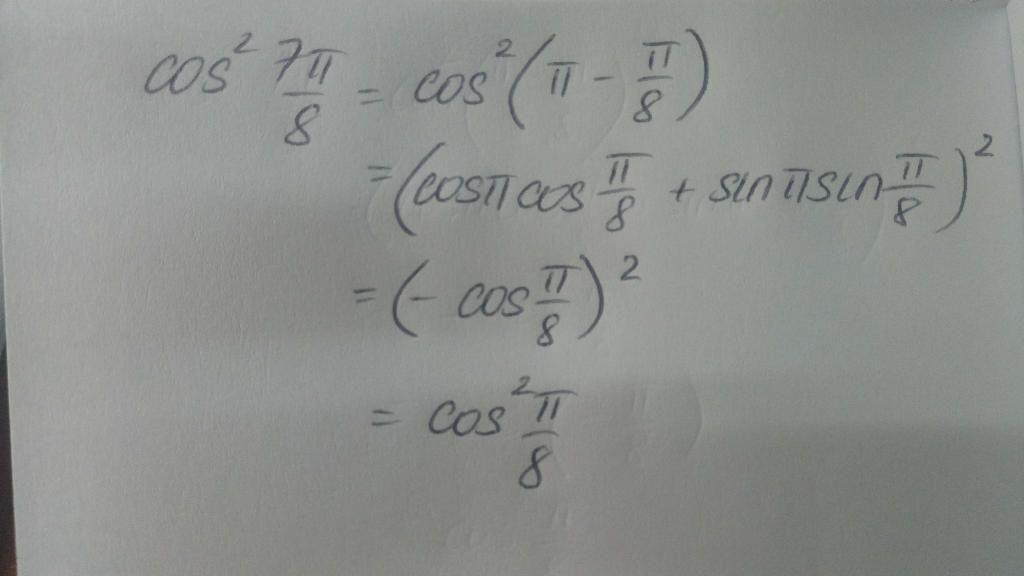 cos² 7π/8 = cos²(π − π/8)
= (cosπ cos π/8 + sinπ sin π/8)²
= (− cos π/8)²
= cos² π/8